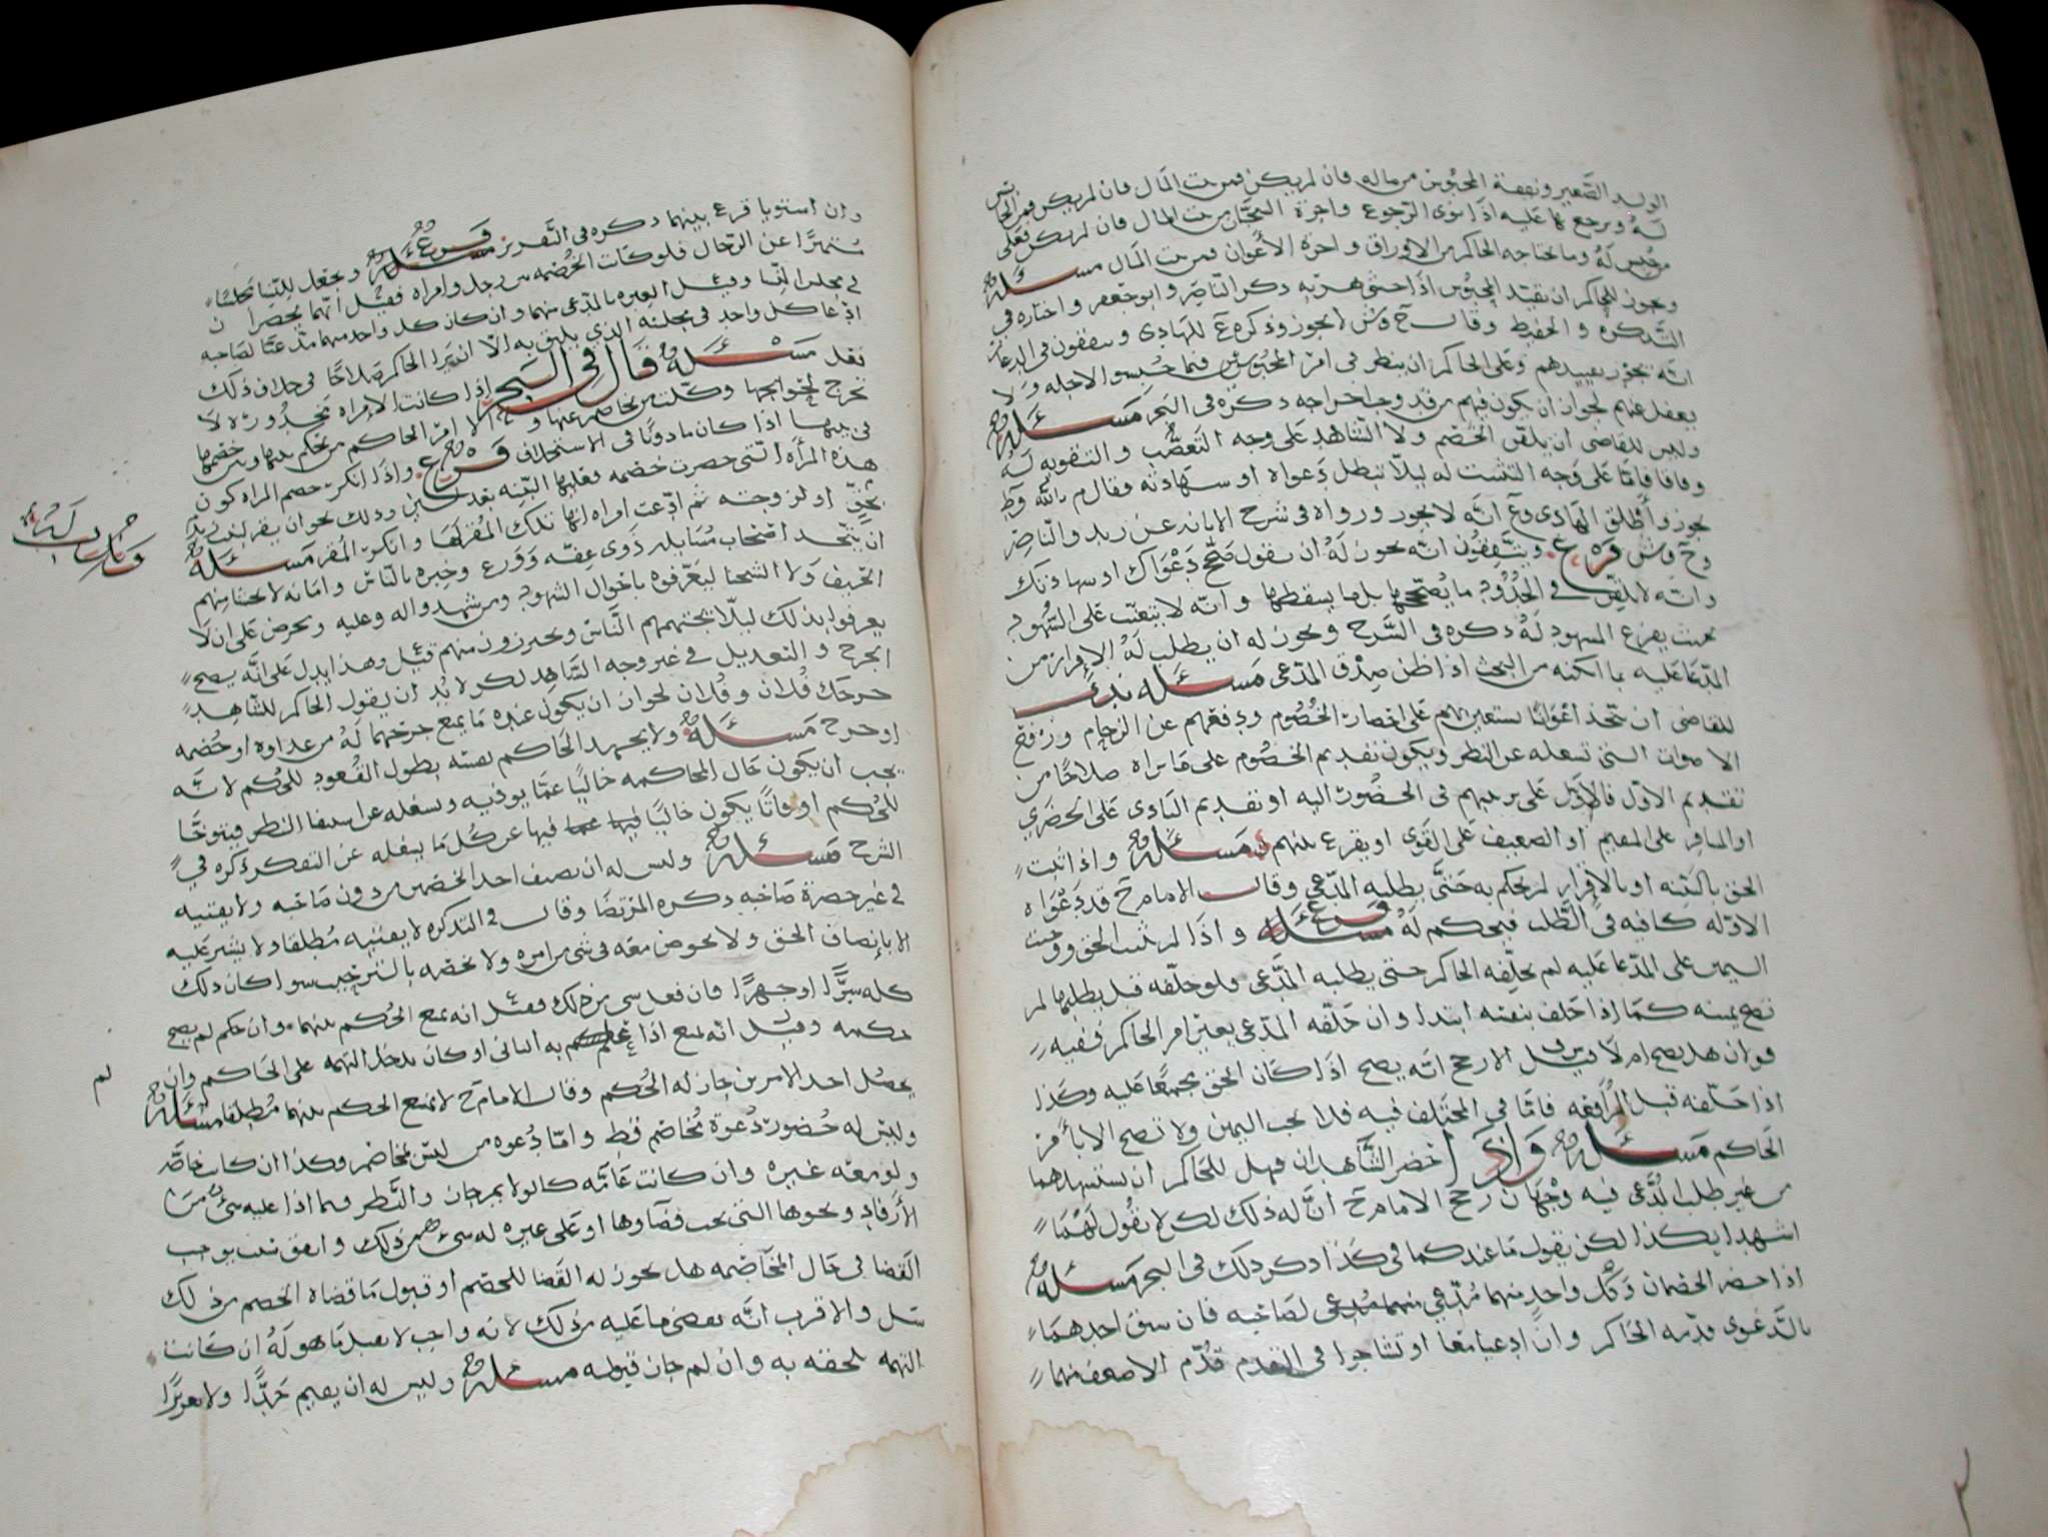 الولد الصغير ونفقة المحبوس من ماله فان لم يكن فمن بيت المال فان لم يكن فمن الحابس
له ويرجع بها عليه اذا نوى الرجوع واجرة السجان من بيت المال فان لم يكن فعلى
من حبس له وما يحتاجه الحاكم من الاوراق واجرة الأعوان فمن بيت المال مسئله
ويجوز للحاكم ان يقيد المحبوس اذا خشي هربه ذكره الناصر وابو جعفر واختاره في
التذكره و الحفيظ وقال ح وش لا يجوز وذكره ع للهادي ويتفقون في الدعار
انه يجوز تقييدهم وعلى الحاكم ان ينظر في امر المحبوسين فيما حبسوا لاجله ولا
يغفل عنهم لجواز ان يكون فيهم من قد وجب اخراجه ذكره في البحر مسئله
وليس للقاضي ان يلقن الخصم ولا الشاهد على وجه التعصب و التقويه له
وفاقا فاما على وجه التثبت له ليلا تبطل دعواه او شهادته فقال م بالله وط
يجوز وأطلق الهادي وع انه لا يجوز ورواه في شرح الابانه عن زيد والناصر
وح وش فرع ويتفقون انه يجوز له ان يقول صحح دعواك او شهادتك
وانه لا يلقن في الحدود ما يصححها بل ما يسقطها وانه لا يتعنت على الشهود
بحيث يفزع المشهود له ذكره في الشرح ويجوز له ان يطلب له الإقرار من
المدعا عليه بما امكنه من البحث اذا ظن صدق المدعي مسئله ندب
للقاضي ان يتخذ اعوانا يستعين بهم على احضار الخصوم ودفعهم عن الزحام ورفع
الاصوات التي تشغله عن النظر ويكون تقديم الخصوم على ما يراه صلاحا من
تقديم الاول فالاول على ترتيبهم في الحضور اليه او تقديم البادي على الحضري
او المسافر على المقيم او الضعيف على القوي او يقرع بينهم مسئله واذا ثبت
الحق بالبينه او بالإقرار لم يحكم به حتى يطلبه المدعي وقال الامام ح قد دعواه
الاوله كافيه في الطلب فيحكم له فرع مسئله واذا لم يثبت الحق ووجبت
اليمين على المدعا عليه لم يحلفه الحاكم حتى يطلبه المدعي فلو حلفه قبل يطلبها لم
تصح يمينه كما إذا حلف بنفسه ابتدا وان حلفه المدعي بغير امر الحاكم ففيه
قولان هل يصح ام لا قيل ف الارجح انه يصح اذا كان الحق مجمعا عليه وكذا
اذا حلفه قبل المرافعه فاما في المختلف فيه فلا يجب اليمين ولا تصح الا بأمر
الحاكم مسئله واذا احضر الشاهدان فهل للحاكم ان يستشهدهما
من غير طلب المدعي فيه وجهان رجح الامام ح ان له ذلك لكن لا يقول لهما
اشهدا بكذا لكن يقول ما عندكما في كذا ذكر ذلك في البحر مسئله
اذا حضر الخصمان وكل واحد منهما مدعي لصاحبه فان سبق احدهما
بالدعوى قدمه الحاكم وان ادعيا معا او تشاجرا في التقدم قدم الاضعف منهما
وان استويا قرع بينهما ذكره في التقرير فرع مسئله ويجعل للنسا مجلسا
مستترا عن الرجال فلو كانت الخصمه بين رجل وامراه فقيل انهما يحضران
في مجلس النسا وقيل العبره بالمدعي منهما وان كان كل واحد منهما مدعيا لصاحبه
ادعا كل واحد في مجلسه الذي يليق به الا ان يرا الحاكم صلاحا في خلاف ذلك
فعل مسئله قال في البحر اذا كانت الامراه مخدوره لا
تخرج لحوائجها وكلت من يخاصم عنها و الا امر الحاكم من يحكم بينها وبين خصمها
في بيتها اذا كان ماذونا في الاستخلاف فرع واذا انكر خصم المراه كون
هذه المرأه التي حضرت خصمه فعليها البينه
بحق او لزوجته ثم ادعت امراه انها تلك المقر لها وانكر المقر مسئله
ان يتخذ اصحاب مسايل ذوي عفه وورع وخبره بالناس وامانه
الحيف ولا الشحنا ليعرفوه باحوال الشهود ومن شهدوا له وعليه ويحرص على ان لا
يعرفوا بذلك ليلا يتجنبهم الناس ويحترزون منهم قيل وهذا يدل على انه يصح
الجرح و التعديل في غير وجه الشاهد لكن لا بد ان يقول الحاكم للشاهد
جرحك فلان وفلان لجواز ان يكون عنده ما يمنع جرحهما له من عداوه او خصمه
او جرح مسئله ولا يجهد الحاكم نفسه بطول القعود للحكم لانه
يجب ان يكون حال المحاكمه خاليا عما يوذيه ويشغله عن استيفا النظر فيتوخا
للحكم اوقاتا يكون خاليا فيها عن كل ما يشغله عن التفكر ذكره في
الشرح مسئله وليس له ان يضيف احد الخصمين من دون صاحبه ولا يفتيه
في غير حضرة صاحبه ذكره المرتضا وقال في التذكره لا يفتيه مطلقا ولا يشير عليه
الا بإنصاف الحق ولا يخوض معه في شي من امره ولا يخصه بالترحيب سوا كان ذلك
كله سرا او جهرا فان فعل شي من ذلك فقيل انه يمنع الحكم بينهما وان حكم لم يصح
حكمه وقيل انه يمنع اذا علم به الثاني او كان يدخل التهمه على الحاكم وان لم
يحصل احد الامرين جاز له الحكم وقال الامام ح لا يمنع الحكم بينهما مطلقا مسئله
وليس له حضور دعوة مخاصم قط واما دعوه من ليس بمخاصم وكذا ان كانت خاصه
ولو معه غيره وان كانت عامه كالولايم جاز والنظر فيما اذا عليه شي من
الأرفاد ونحوها التي يجب قضاوها او على غيره له شي من ذلك واتفق سبب يوجب
القضا في حال المخاصمه هل يجوز له القضا للخصم او قبول ما قضاه الخصم من ذلك
سل والاقرب انه يقضي ما عليه من ذلك لانه واجب لا يقبل ما هو له ان كانت
التهمه تلحقه به وان لم جاز قبوله مسئله وليس له ان يقيم حدا ولا تعزيرا